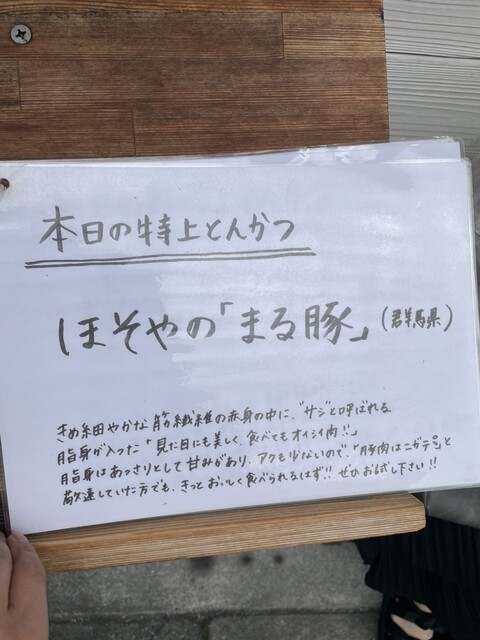 本日の特上とんかつ
ほそやの「まる豚」(群馬県)
きめ細やかな筋繊維の赤身の中に、"サシ"と呼ばれる
脂身が入った「見た目にも美しく、食べてもオイシイ肉!!」
脂身はあっさりとして甘みがあり、アクも少ないので、「豚肉はニガテ…」と
敬遠していた方でも、きっとおいしく食べられるはず!! ぜひお試し下さい!!